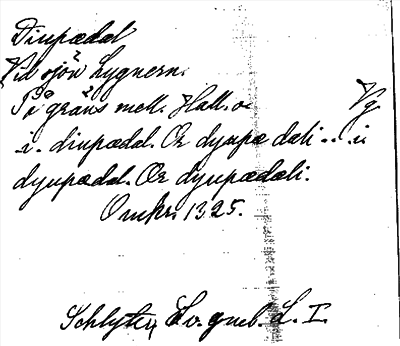 Diupædal
Vid sjön Lygnern.
På gräns mell. Hall. o. Vg
i. diupædal. Or dyupædali .. i
dyupædal. Or dyupædali.
Omkr. 1325.
Schlyter, Sv. gml. L. I.